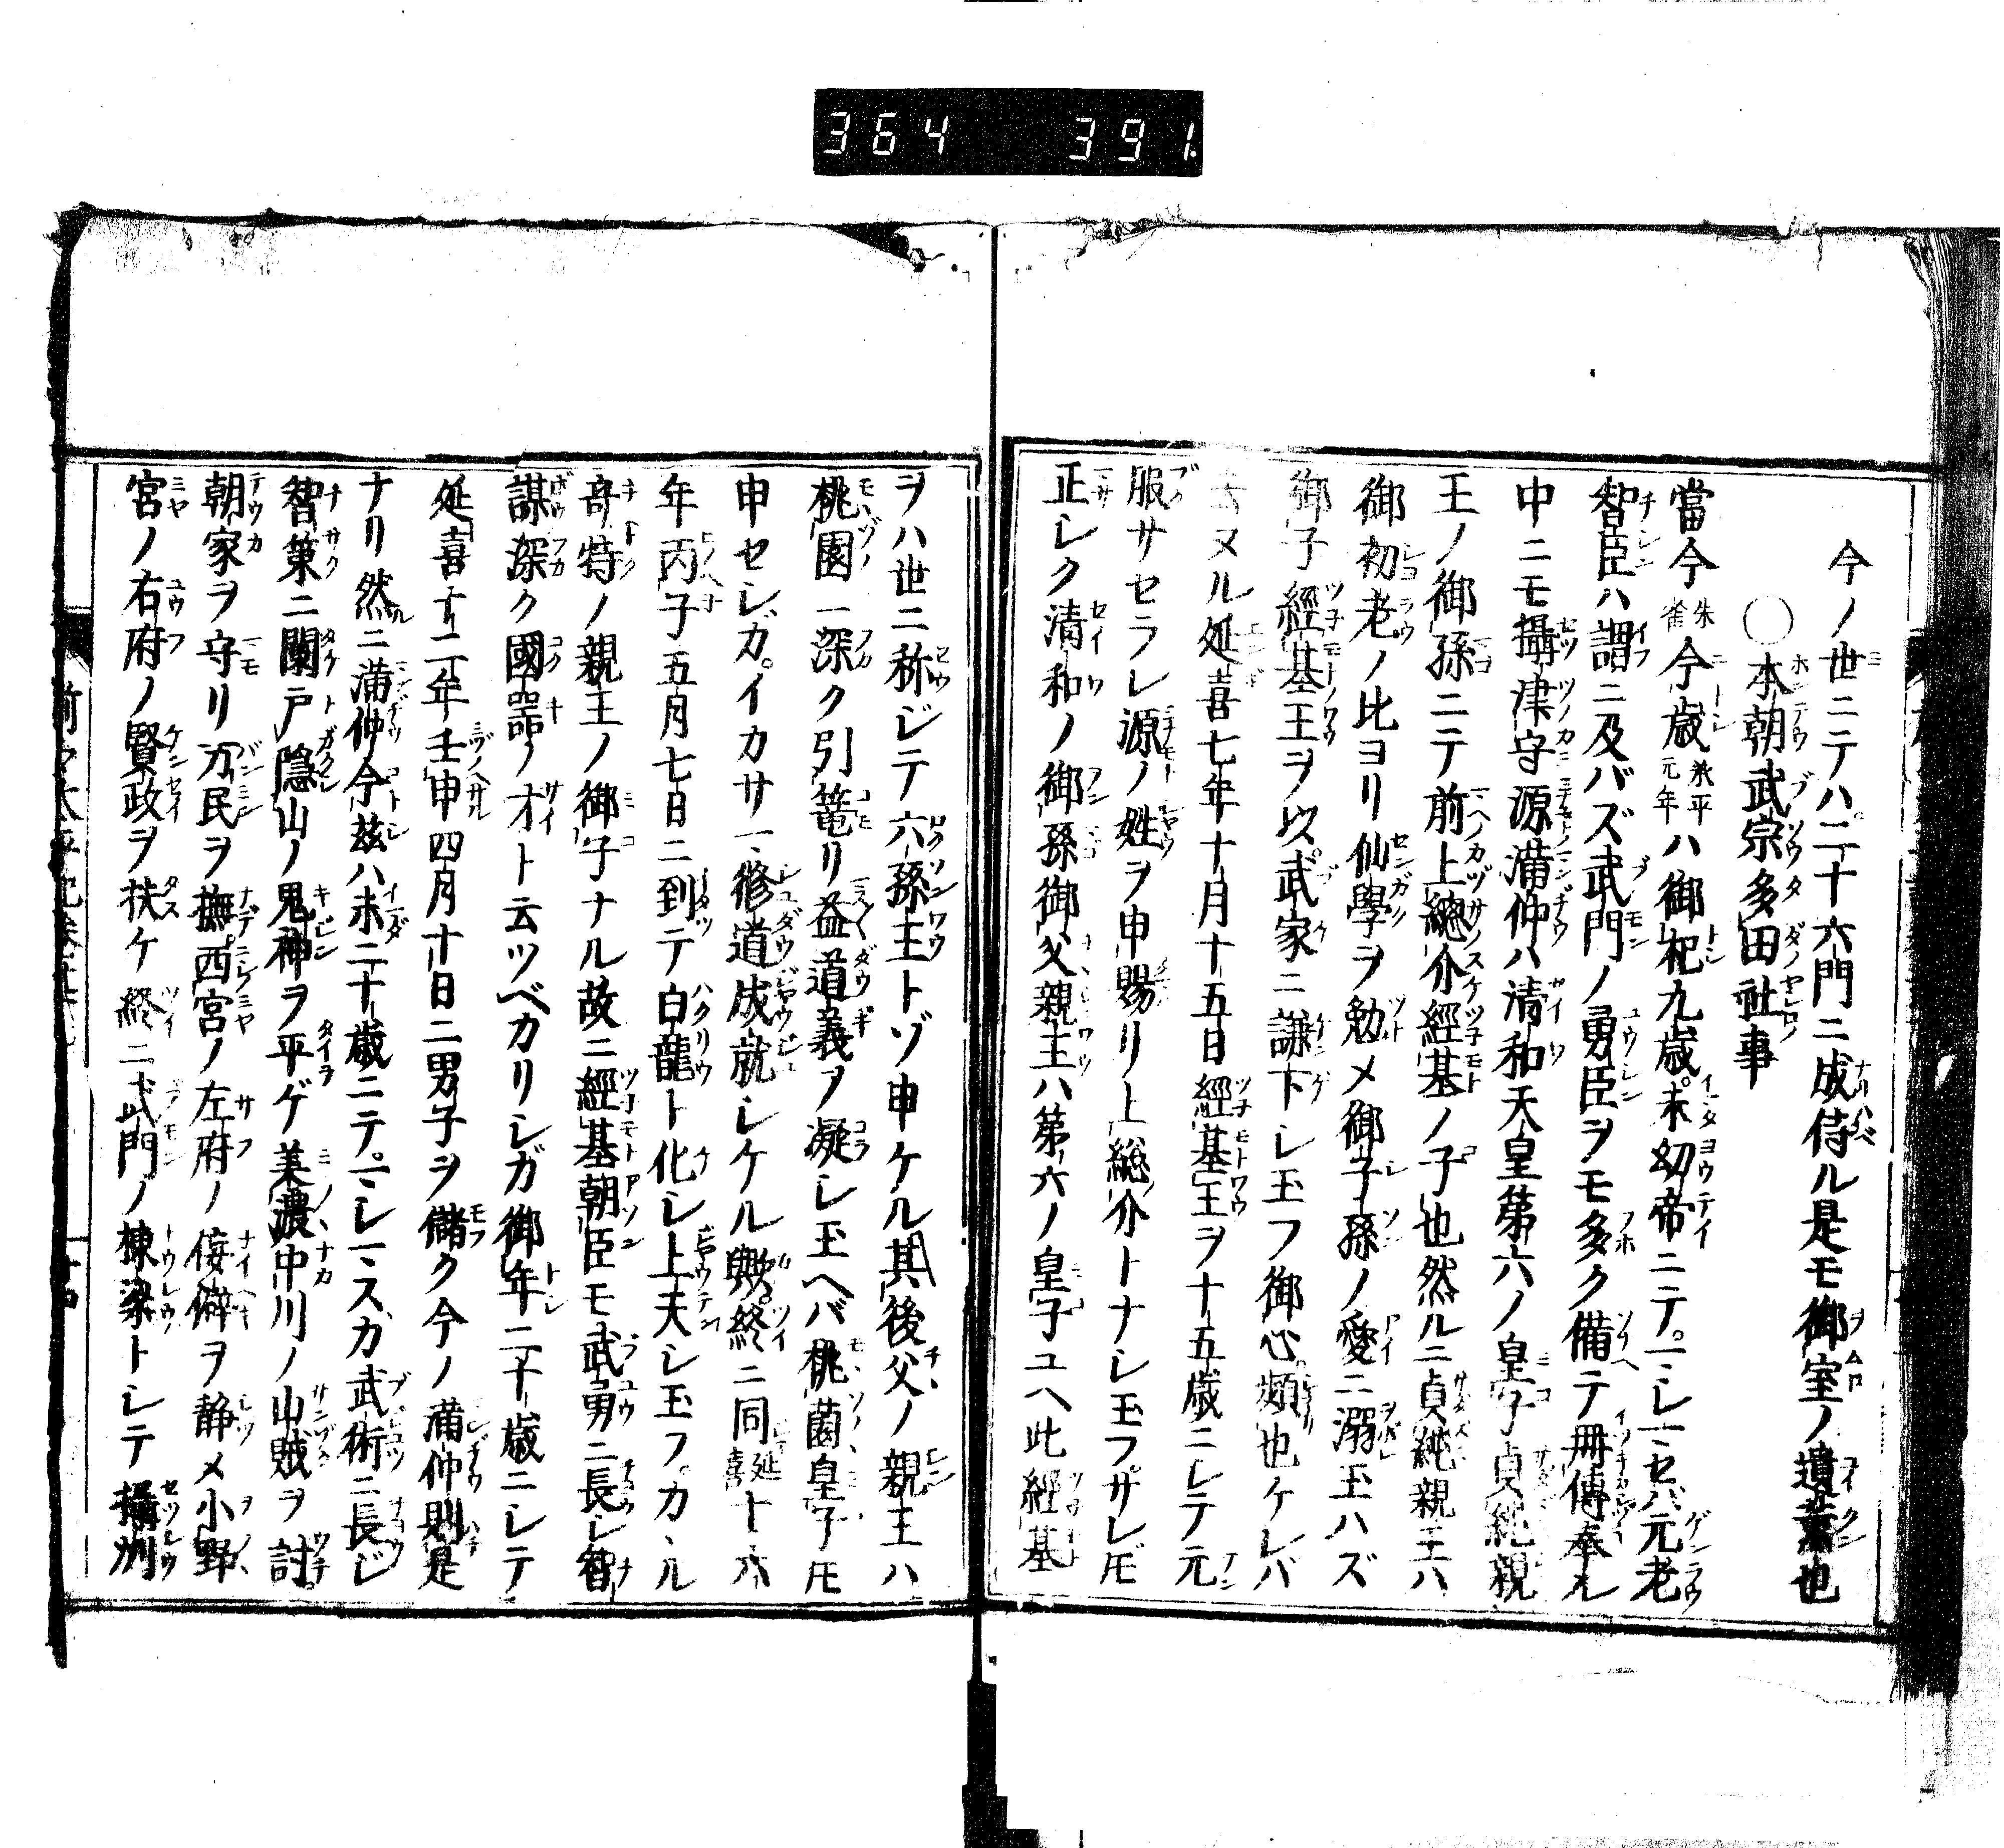 364 391
今ノ世ニテハ二十六門ニ成侍ル是モ御室ノ遺薫也
○本朝武宗多田社事
當今朱雀今歳承平元年ハ御祀九歳未幼帝ニテマシマセバ元老
智臣ハ謂ニ及バズ武門ノ勇臣ヲモ多ク備テ冊傳奉ル
中ニモ攝津守源滿仲ハ清和天皇第六ノ皇子貞純親
王ノ御孫ニテ前上總介經基ノ子也然ルニ貞純親王ハ
御初老ノ比ヨリ仙學ヲ勉メ御子孫ノ愛ニ溺玉ハズ
御子經基王ヲ以武家ニ謙下シ玉フ御心頻也ケレバ
ヌル延喜七年十月十五日經基王ヲ十五歳ニシテ元
服サセラレ源ノ姓ヲ申賜リ上総介トナシ玉フサレ𪜈
正シク清和ノ御孫御父親王ハ第六ノ皇子ユヘ此經基
ヲハ世ニ称ジテ六孫王トゾ申ケル其後父ノ親王ハ
桃園ニ深ク引篭リ益道義ヲ凝シ玉ヘバ桃薗皇子𪜈
申セシガイカサマ修道成就シケル歟終ニ同延喜十六
年丙子五月七日ニ到テ白龍ト化シ上天シ玉フカヽル
竒特ノ親王ノ御子ナル故ニ經基朝臣モ武勇ニ長シ智
謀深ク國噐ノ才ト云ツベカリシガ御年二十歳ニシテ
延喜十二年壬申四月十日ニ男子ヲ儲ク今ノ滿仲則是
ナリ然ルニ滿仲今茲ハ未二十歳ニテマシマスガ武術ニ長ジ
智策ニ闌テ戸隠山ノ鬼神ヲ平ゲ美濃中川ノ山賊ヲ討
朝家ヲ守リ万民ヲ撫西宮ノ左府ノ侫僻ヲ静メ小野
宮ノ右府ノ賢政ヲ扶ケ終ニ武門ノ棟梁トシテ攝州